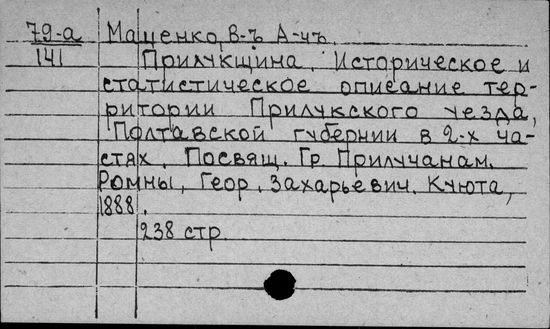 79-а Маценко, В-ъ А-чъ.
141 Прилукщина. Историческое и
статистическое описание тер-
ритории Прилукского уезда,
Полтавской губернии в 2-х ча-
стях. Посвящ. Гр. Прилучанам.
Ромны, Геор. Захарьевич. Кчюта,
1888.
238 стр.